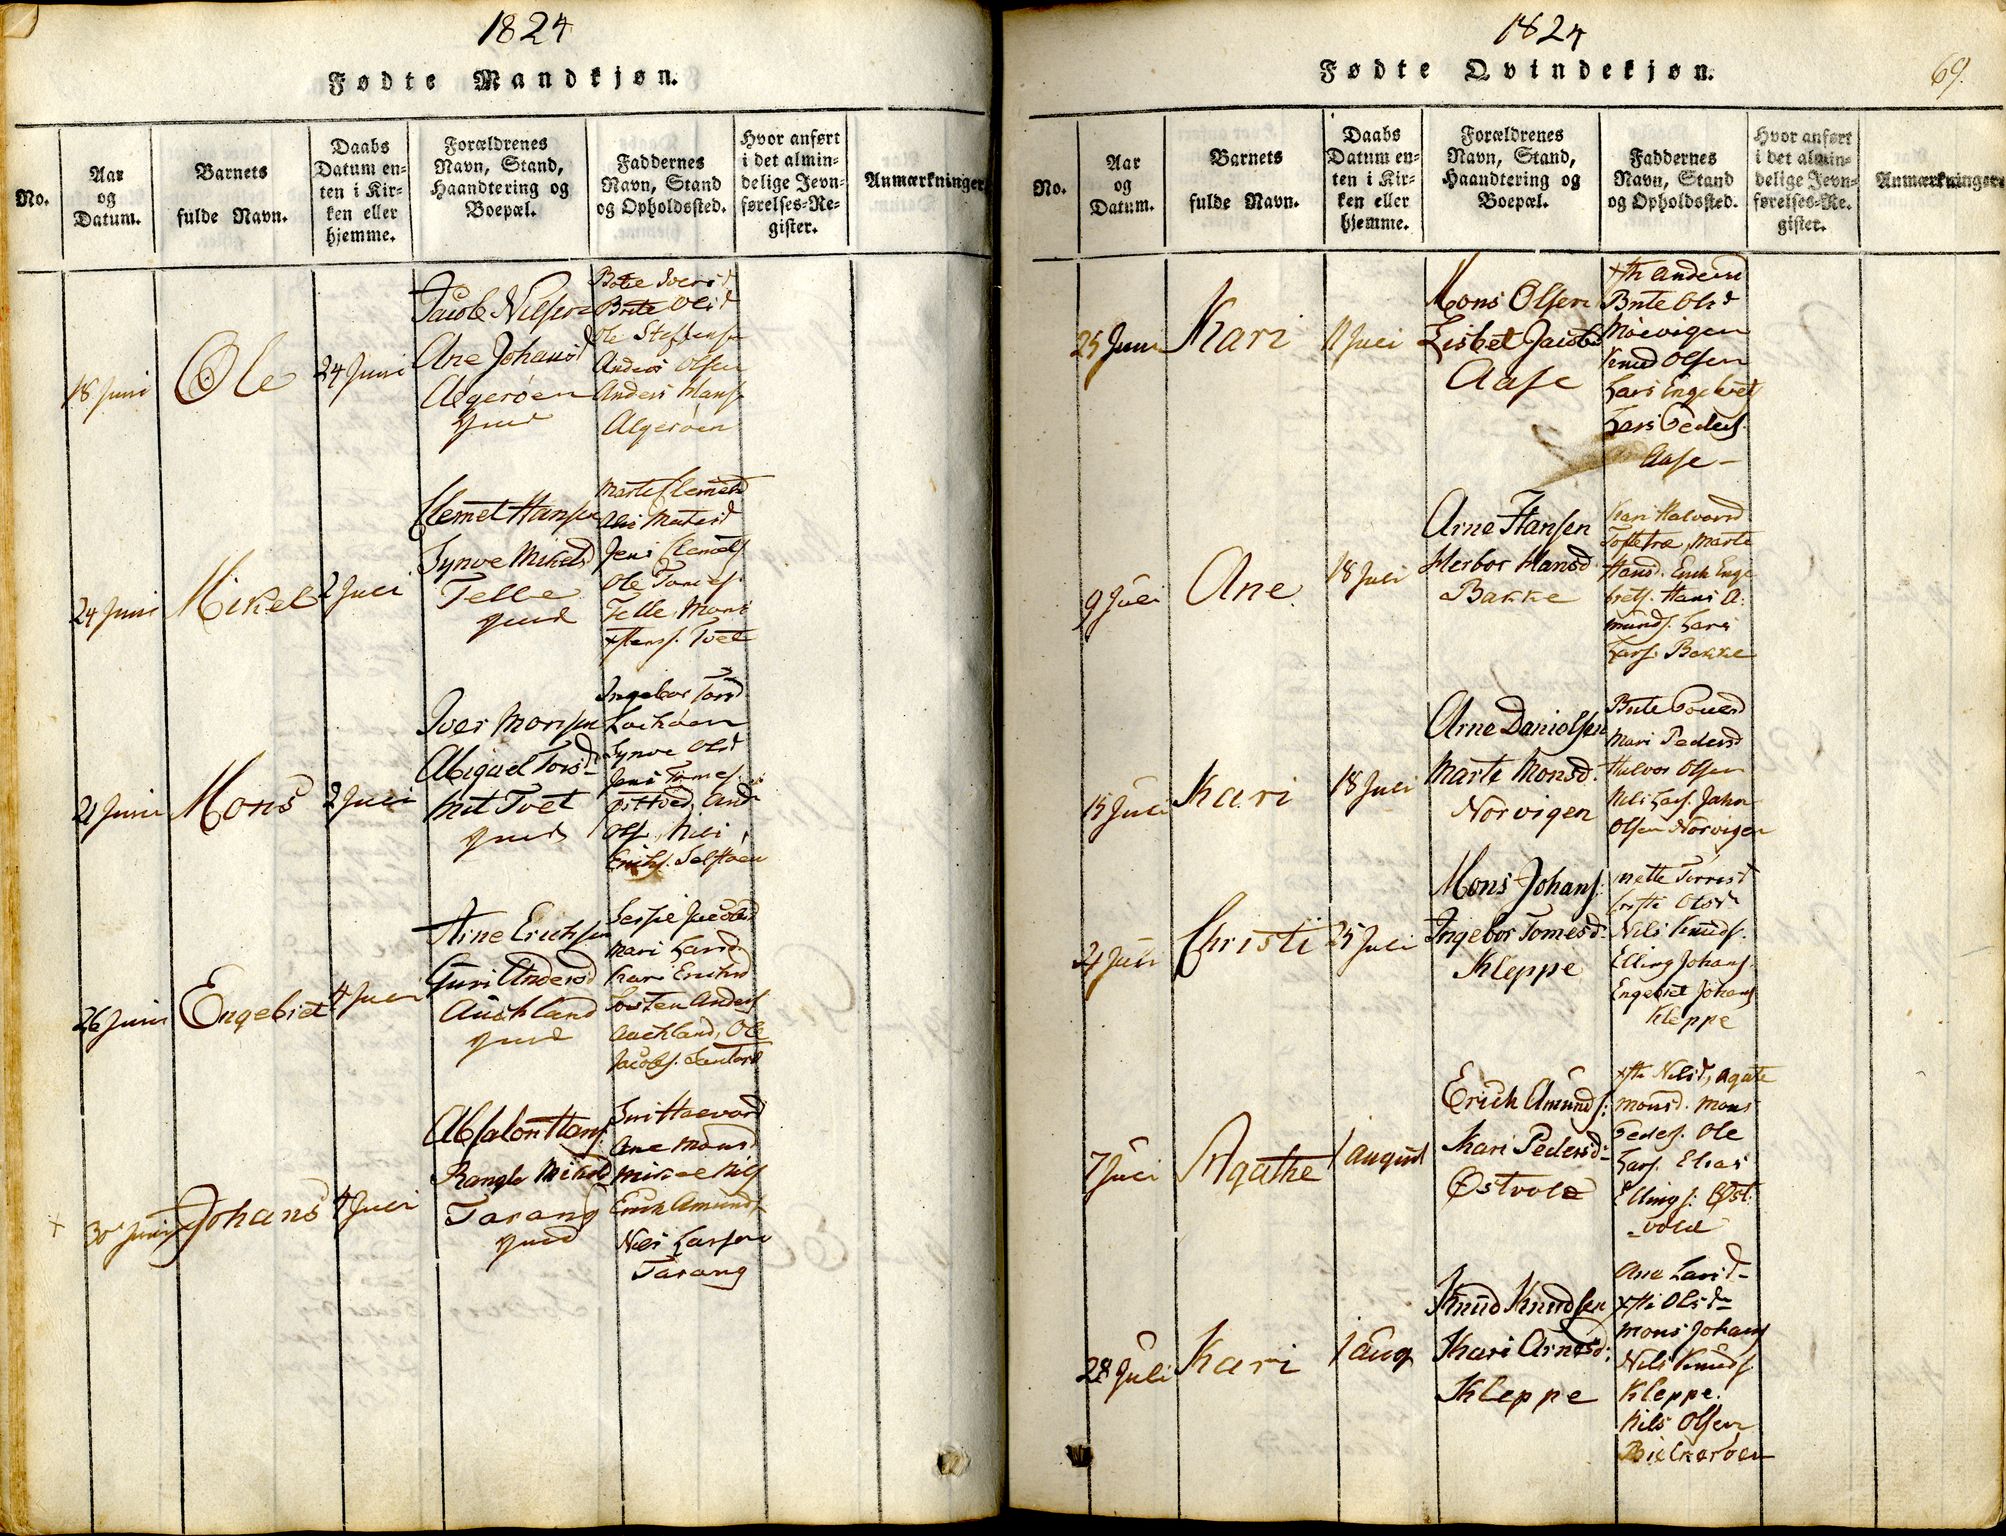 1824
Fødte Mandkjøn.
No.
Aar
og
Datum.
Barnets
fulde Navn.
Daabs
Datum en-
ten i Kir-
ken eller
hjemme.
Forældrenes
Navn, Stand,
Haandtering og
Boepæl.
Faddernes
Navn, Stand
og Opholdssted.
Hvor anført
i det almin-
delige Jevn-
førelses-Re-
gister.
Anmærkninger
18 Juni
Ole
24 Juni
Jacob Nilsen
Ane Johansd
Algerøen
gmd
Brite Olsd
Ole Steffensen
Anders Olsen
Anders Hans.
Algerøen
24 Juni
Mikel
2 Juli
Clemet Hansen
Synve Mikelsd
Telle
gmd
Marte Clemetsd
Jens Clemets
Ole Tomes.
Telle, Mons
Tvet
21 Juni
Mons
2 Juli
Iver Monsen
Abigael Torsd
Mit Tvet
gmd
Ingebor Torsd
Synve Olsd
Jens Tomes.
Østvold, And
Ols. Nils
Erichs. Selstøen
26 Juni
Engebret
4 Juli
Arne Erichsen
Guri Andersd
Auchland
gmd
Jacobsd
Mari Larsd
Kari Erichsd
Torsten Anders
Auchland, Ole
Jacobs.
+
30 Juni
Johans
4 Juli
Absalon Hans.
Rangle Mikelsd
Tarang
gmd
Siri Haavord
Ane Monsd
Mikel Nils
Erich Amunds
Nils Larsen
Tarang
1824
69.
Fødte Qvindekjøn.
No.
Aar
og
Datum.
Barnets
fulde Navn.
Daabs
Datum en-
ten i Kir-
ken eller
hjemme.
Forældrenes
Navn, Stand,
Haandtering og
Boepæl.
Faddernes
Navn, Stand
og Opholdssted.
Hvor anført
i det almin-
delige Jevn-
førelses-Re-
gister.
Anmærkninger.
25 Juni
Kari
11 Juli
Mons Olsen
Lisbet Jacobs
Aase
Xsti Andersd
Brite Olsd
Møevigen
Knud Olsen
Lars Engebrets
Lars Peders.
Aase
9 Juli
Ane
18 Juli
Arne Hansen
Herbor Hansd
Bakke
Kari Halvorsd
Toftetræ, Marte
Hansd. Erich Enge
brets. Hans A-
munds. Lars
Lars. Bakke
15 Juli
Kari
18 Juli
Arne Danielsen
Marte Monsd.
Norvigen
Brite Povelsd
Mari Pedersd
Halvor Olsen
Nils Lars. John
Olsen Norvigen
21 Juli
Christi
25 Juli
Mons Johans.
Ingebor Tomesd.
Kleppe
Mette Torresd
Olsdr
Nils Knuds.
Elling Johans.
Engebret Johans
Kleppe
7 Juli
Agathe
1 august
Erich Amunds.
Kari Pedersd.
Østvold
Xsti Nilsd, Agate
Monsd. Mons
Peders. Ole
Lars. Elias
Ellings. Øst-
vold
28 Juli
Kari
1 aug
Knud Knudsen
Kari Arnesd.
Kleppe
Ane Larsd
Xsti Olsdr
Mons Johans
Nils Knuds.
Kleppe.
Nils Olsen
Bielkerøen